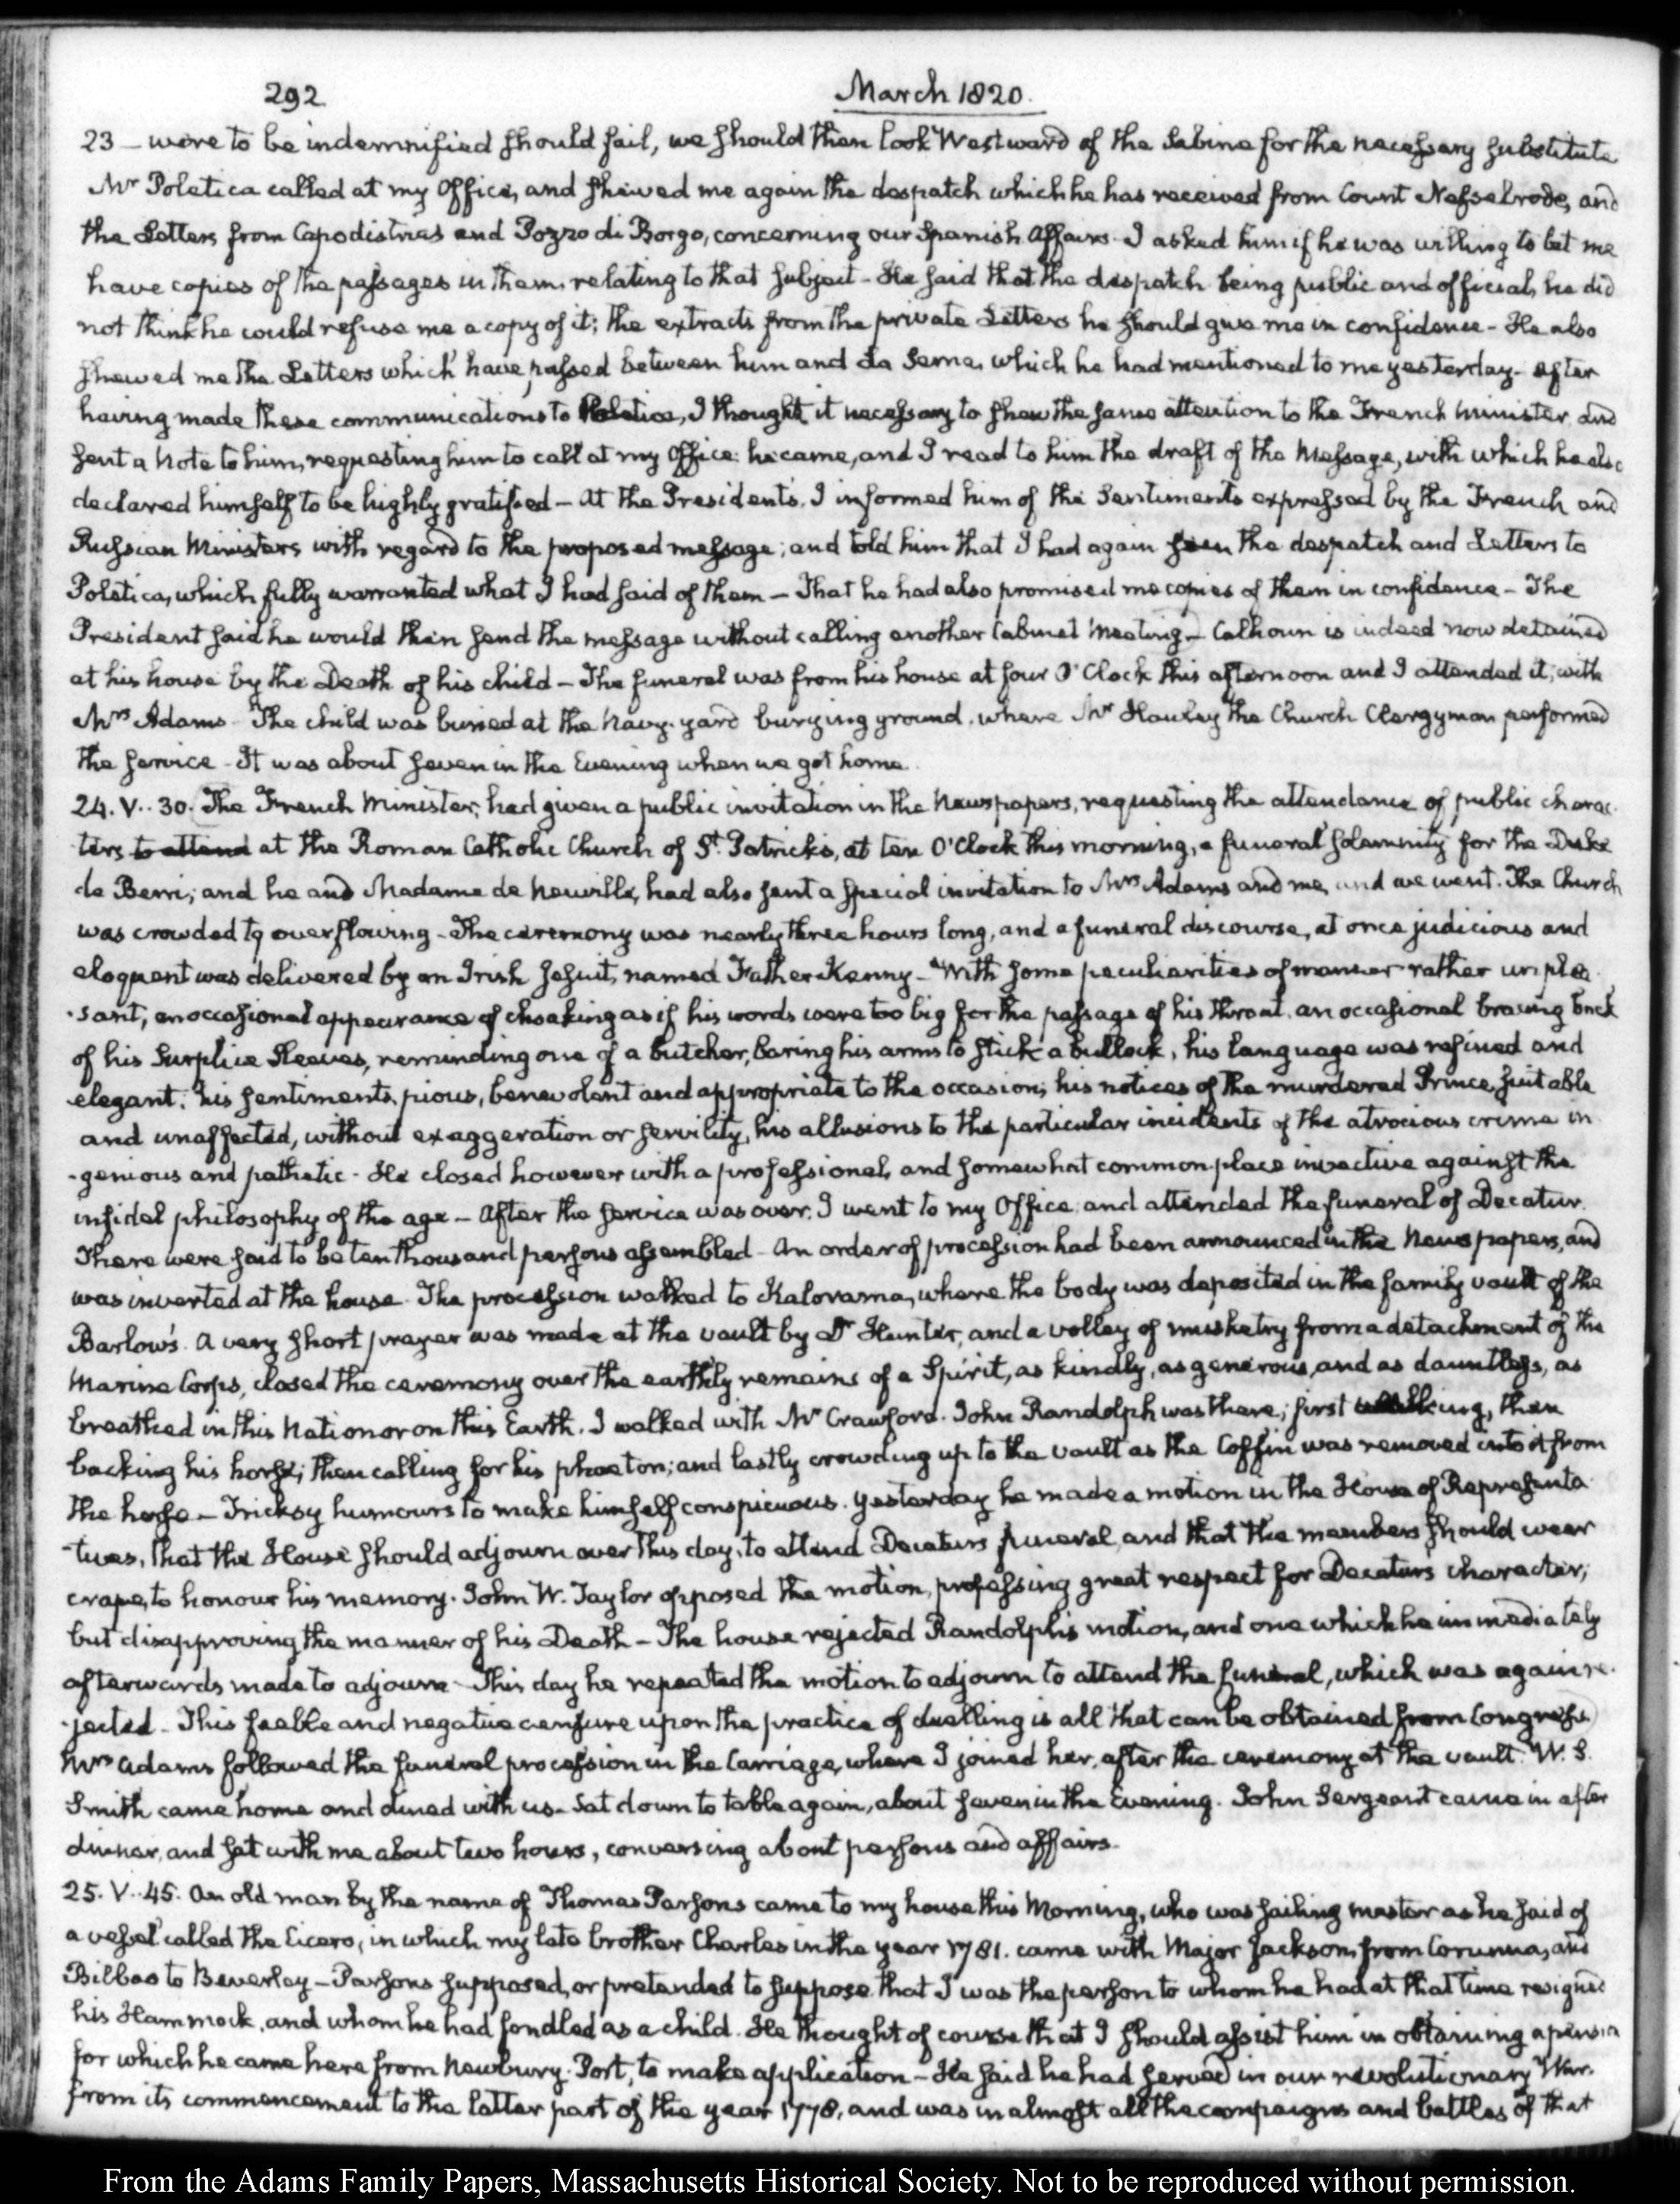 292
March 1820.
23 – were to be indemnified should fail, we should then look Westward of the Sabine for the necessary substitute
Mr Poletica called at my Office, and shewed me again the despatch which he has received from Count Nesselrode, and
the Letters from Capodistrias and Pozzo di Borgo, concerning our Spanish Affairs. I asked him if he was willing to let me
have copies of the passages in them, relating to that subject – He said that the despatch being public and official, he did
not think he could refuse me a copy of it; the extracts from the private Letters he should give me in confidence – He also
shewed me the Letters which have passed between him and La Serna, which he had mentioned to me yesterday – after
having made these communications to Poletica, I thought it necessary to shew the same attention to the French Minister, and
sent a Note to him, requesting him to call at my Office: he came, and I read to him the draft of the Message, with which he also
declared himself to be highly gratified – At the President's, I informed him of the Sentiments expressed by the French and
Russian Ministers with regard to the proposed message; and told him that I had again seen the despatch and Letters to
Poletica, which fully warranted what I had said of them – That he had also promised me copies of them in confidence – The
President said he would then send the message without calling another Cabinet Meeting – Calhoun is indeed now detained
at his house by the Death of his child – The funeral was from his house at four O'Clock this afternoon and I attended it, with
Mrs Adams – The child was buried at the Navy-yard burying ground, where Mr Hawley the Church Clergyman performed
the service – It was about seven in the Evening when we got home.
24. V. 30. The French Minister, had given a public invitation in the Newspapers, requesting the attendance of public charac-
ters to attend at the Roman Catholic Church of St. Patricks, at ten O'Clock this morning, a funeral solemnity for the Duke
de Berri; and he and Madame de Neuville, had also sent a special invitation to Mrs Adams and me, and we went. The Church
was crowded to overflowing – The ceremony was nearly three hours long, and a funeral discourse, at once judicious and
eloquent was delivered by an Irish Jesuit, named Father Kenny – With some peculiarities of manner rather unplea-
-sant, an occasional appearance of choaking as if his words were too big for the passage of his throat, an occasional braving back
of his Surplice Sleeves, reminding one of a butcher, baring his arms to stick a bullock, his language was refined and
elegant; his sentiments, pious, benevolent and appropriate to the occasion; his notices of the murdered Prince, suitable
and unaffected, without exaggeration or servility, his allusions to the particular incidents of the atrocious crime in-
-genious and pathetic – He closed however with a professional, and somewhat common-place invective against the
infidel philosophy of the age – After the service was over, I went to my Office and attended the funeral of Decatur.
There were said to be ten thousand persons assembled – An order of procession had been announced in the Newspapers, and
was inverted at the house. The procession walked to Kalorama, where the body was deposited in the family vault of the
Barlow's. A very short prayer was made at the vault by Dr Hunter, and a volley of musketry from a detachment of the
Marine Corps, closed the ceremony over the earthly remains of a Spirit, as kindly, as generous, and as dauntless, as
breathed in this Nation or on this Earth. I walked with Mr Crawford. John Randolph was there; first walking, then
backing his horse; then calling for his phaeton; and lastly crowding up to the vault as the Coffin was removed into it from
the hearse – Tricksy humours to make himself conspicuous. Yesterday he made a motion in the House of Representa-
-tives, that the House should adjourn over this day, to attend Decatur's funeral, and that the members should wear
crape, to honour his memory. John W. Taylor opposed the motion, professing great respect for Decatur's character;
but disapproving the manner of his Death – The house rejected Randolph's motion, and one which he immediately
afterwards made to adjourn – This day he repeated the motion to adjourn to attend the funeral, which was again re-
-jected – This feeble and negative censure upon the practice of duelling is all that can be obtained from Congress.
Mrs Adams followed the funeral procession in the Carriage, where I joined her, after the ceremony at the vault. W. S.
Smith came home and dined with us – Sat down to table again, about seven in the Evening. John Sergeant came in after
dinner, and sat with me about two hours, conversing about persons and affairs.
25. V. 45. An old man by the name of Thomas Parsons came to my house this Morning, who was sailing master as he said of
a vessel called the Cicero, in which my late brother Charles in the year 1781. came with Major Jackson, from Corunna, and
Bilbao to Beverley – Parsons supposed, or pretended to suppose that I was the person to whom he had at that time resigned
his Hammock, and whom he had fondled as a child. He thought of course that I should assist him in obtaining a pension
for which he came here from Newbury-Port, to make application – He said he had served in our revolutionary War.
from its commencement to the latter part of the year 1778, and was in almost all the campaigns and battles of that
From the Adams Family Papers, Massachusetts Historical Society. Not to be reproduced without permission.